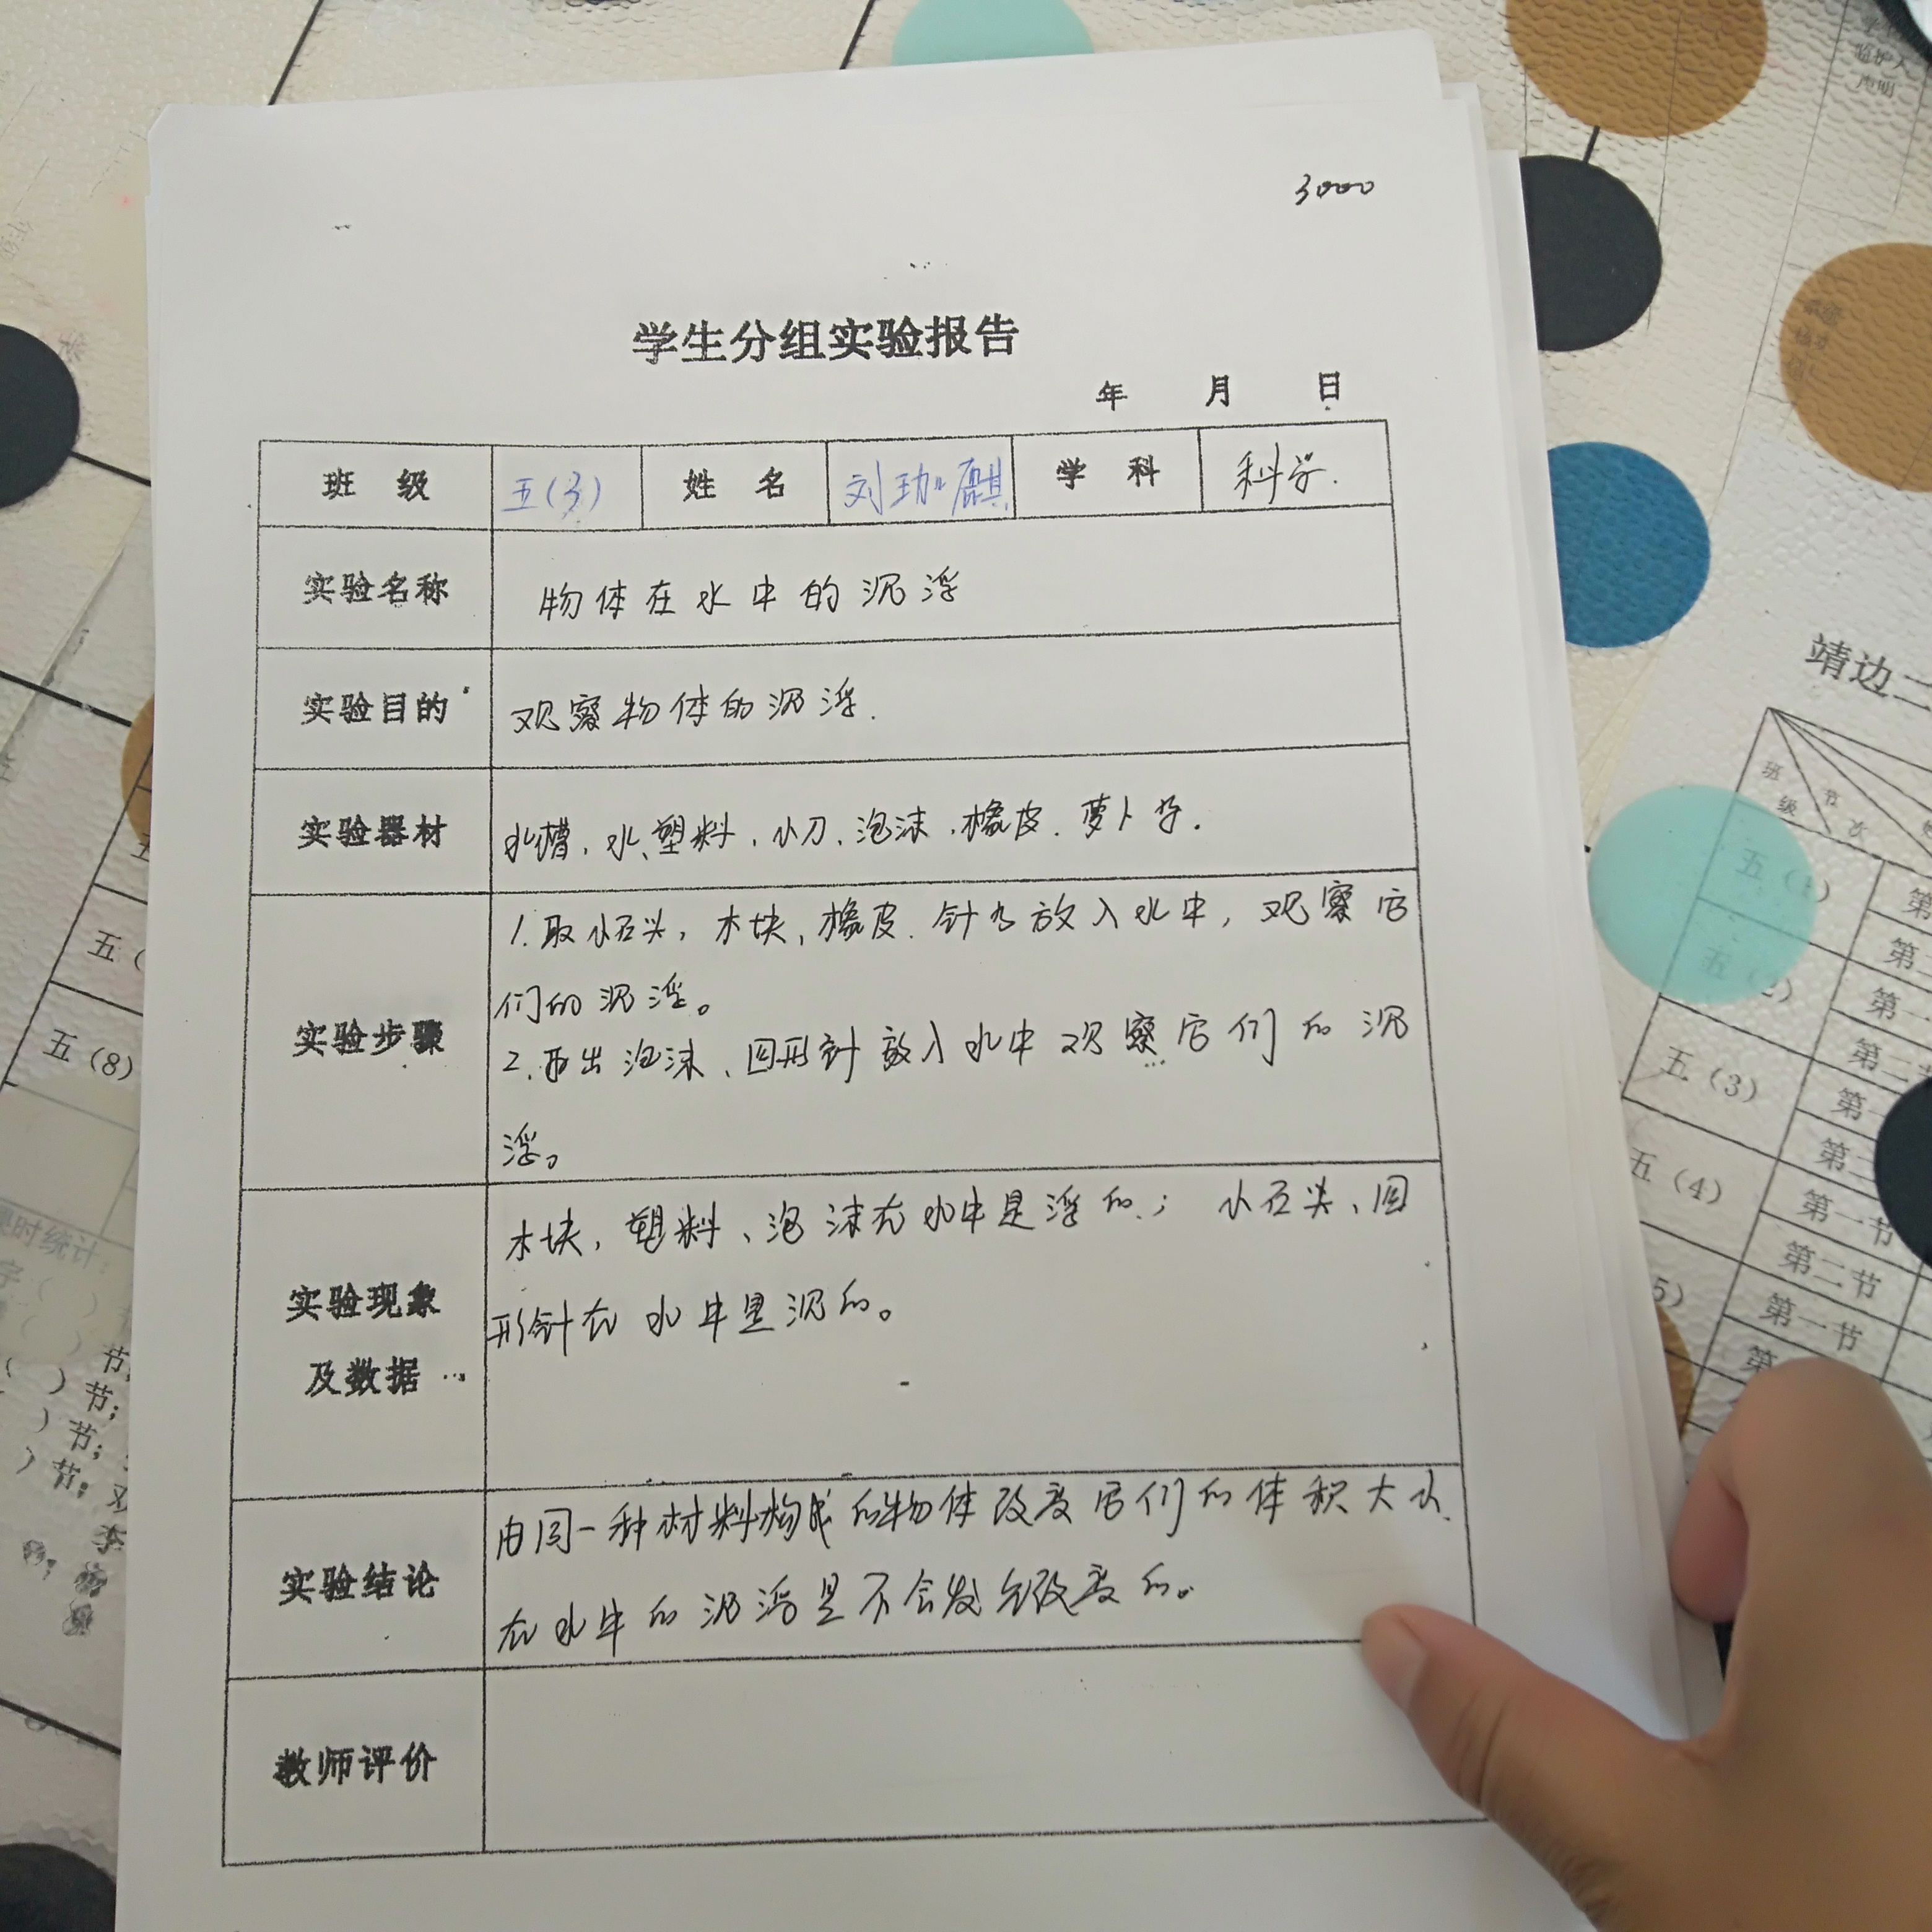 3000
学生分组实验报告
年 月 日
班 级 五(3) 姓 名 刘珈麒 学 科 科学.
实验名称 物体在水中的沉浮
实验目的 观察物体的沉浮.
实验器材 水槽、水、塑料、小刀、泡沫、橡皮、萝卜等.
实验步骤
1.取小石头,木块,橡皮.针 放入水中,观察它
们的沉浮。
2. 出泡沫、回形针放入水中观察它们的沉
浮。
实验现象
及数据
木块,塑料、泡沫在水中是浮的;小石头、回
形针在水中是沉的。
实验结论
由同一种材料构成的物体改变它们的体积大小
在水中的沉浮是不会发生改变的。
教师评价
靖边二
班
级
节
次
五(1)
五(2)
五(3)
五(4)
5)
第一节
第二节
第一节
五(8)
课时统计:
节;
)节;
)节;
)节;
监护人
声明